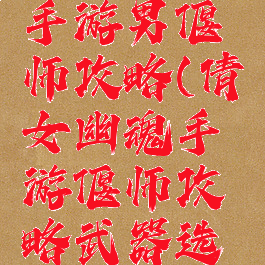 手游男偃
师攻略(倩
女幽魂手
游偃师攻
略武器选